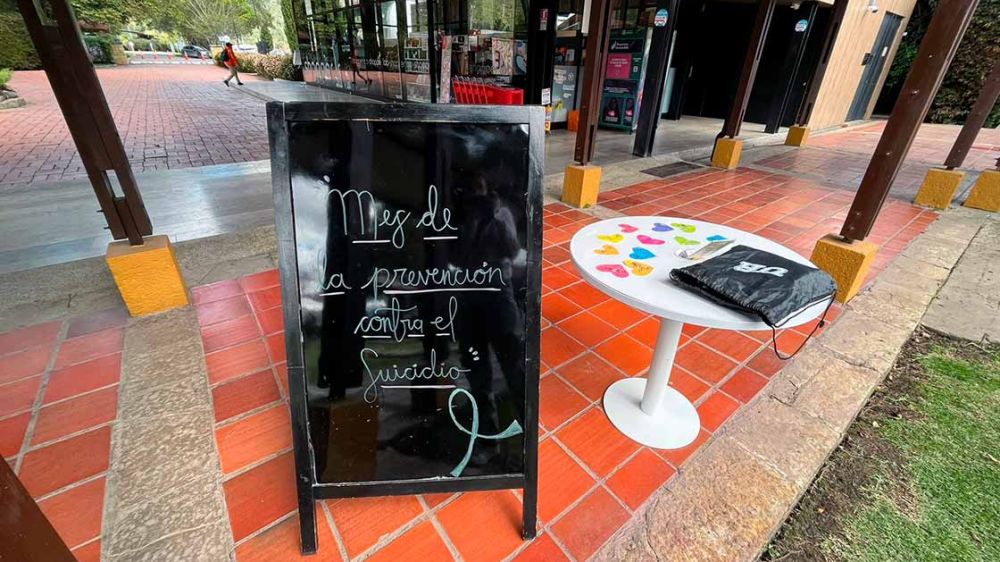 "Mes de
la prevención
contra el
Suicidio"